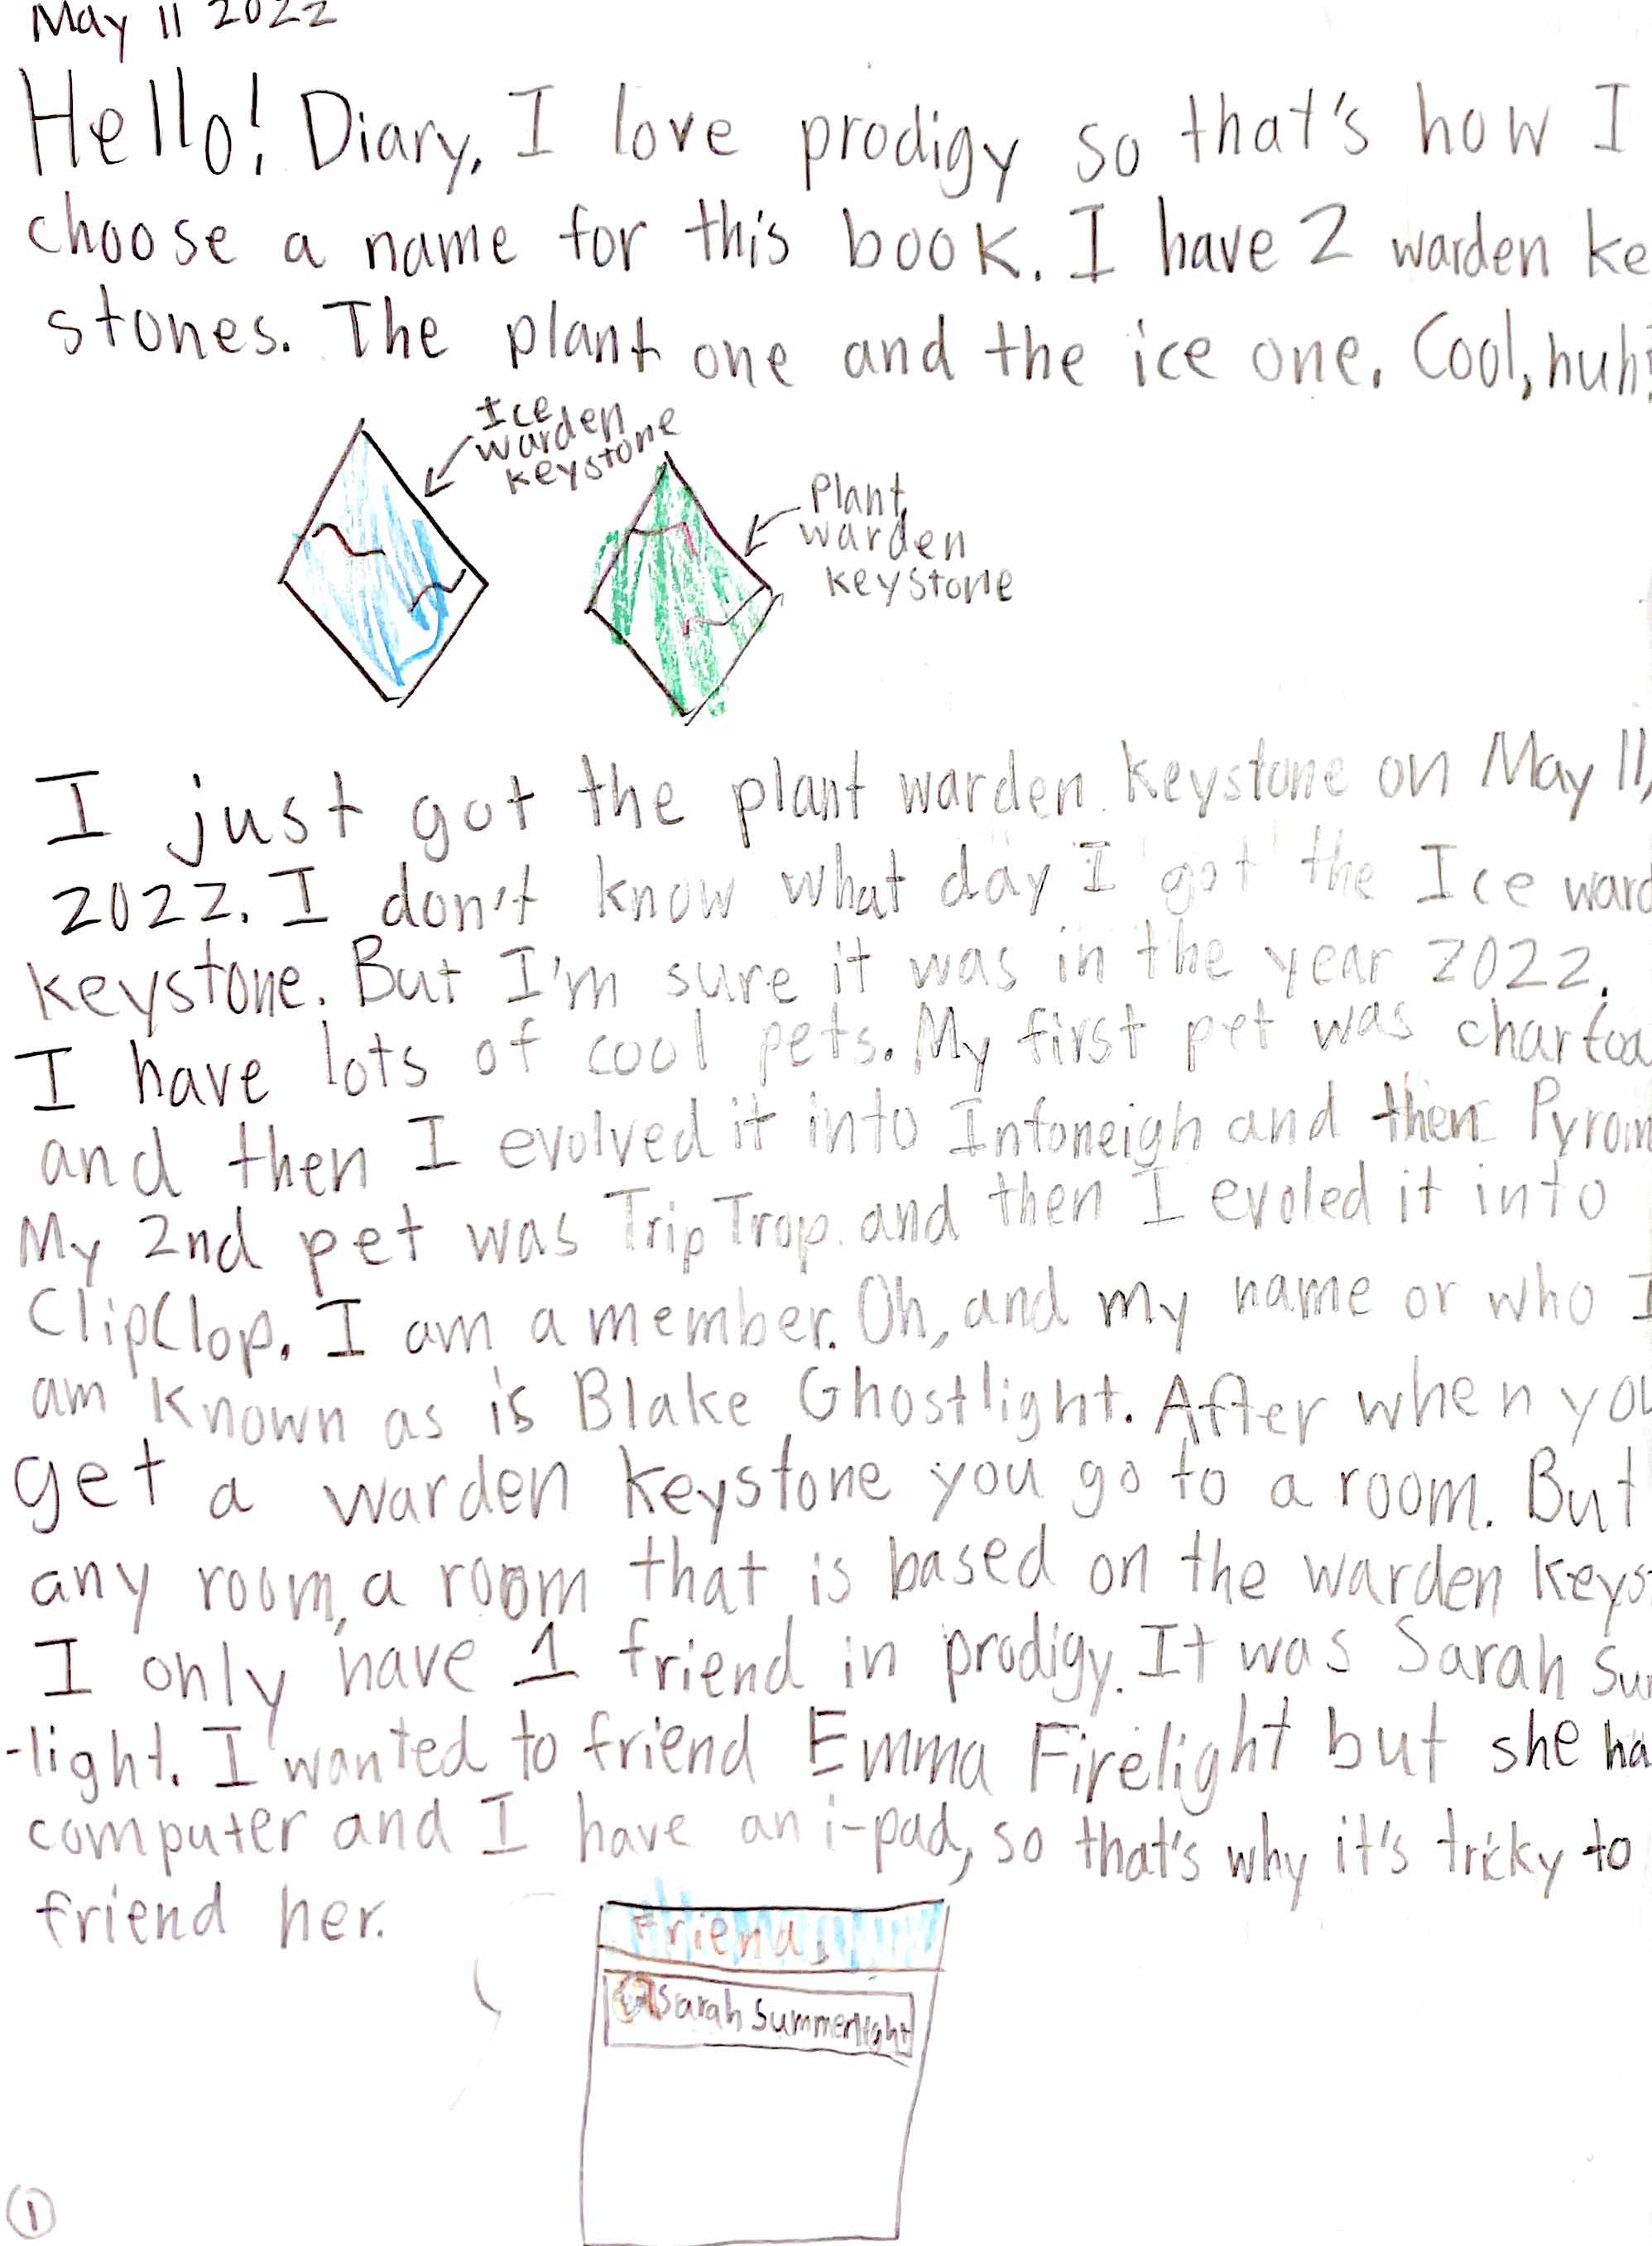 May 11 2022
Hello! Diary, I love prodigy so that's how I
choose a name for this book. I have 2 warden ke
stones. The plant one and the ice one. Cool, huh?
Ice
warden
keystone
Plant
warden
keystone
I just got the plant warden keystone on May 11,
2022. I don't know what day I got the Ice ward
keystone. But I'm sure it was in the year 2022.
I have lots of cool pets. My first pet was charfoa
and then I evolved it into Infoneigh and then Pyrom
My 2nd pet was Trip Trop and then I evoled it into
ClipClop. I am a member. Oh, and my name or who I
am known as is Blake Ghostlight. After when you
get a warden keystone you go to a room. But
any room, a room that is based on the warden keys
I only have 1 friend in prodigy. It was Sarah Su
-light. I wanted to friend Emma Firelight but she ha
computer and I have an i-pad, so that's why it's tricky to
friend her.
Friends
Sarah Summerlight
1